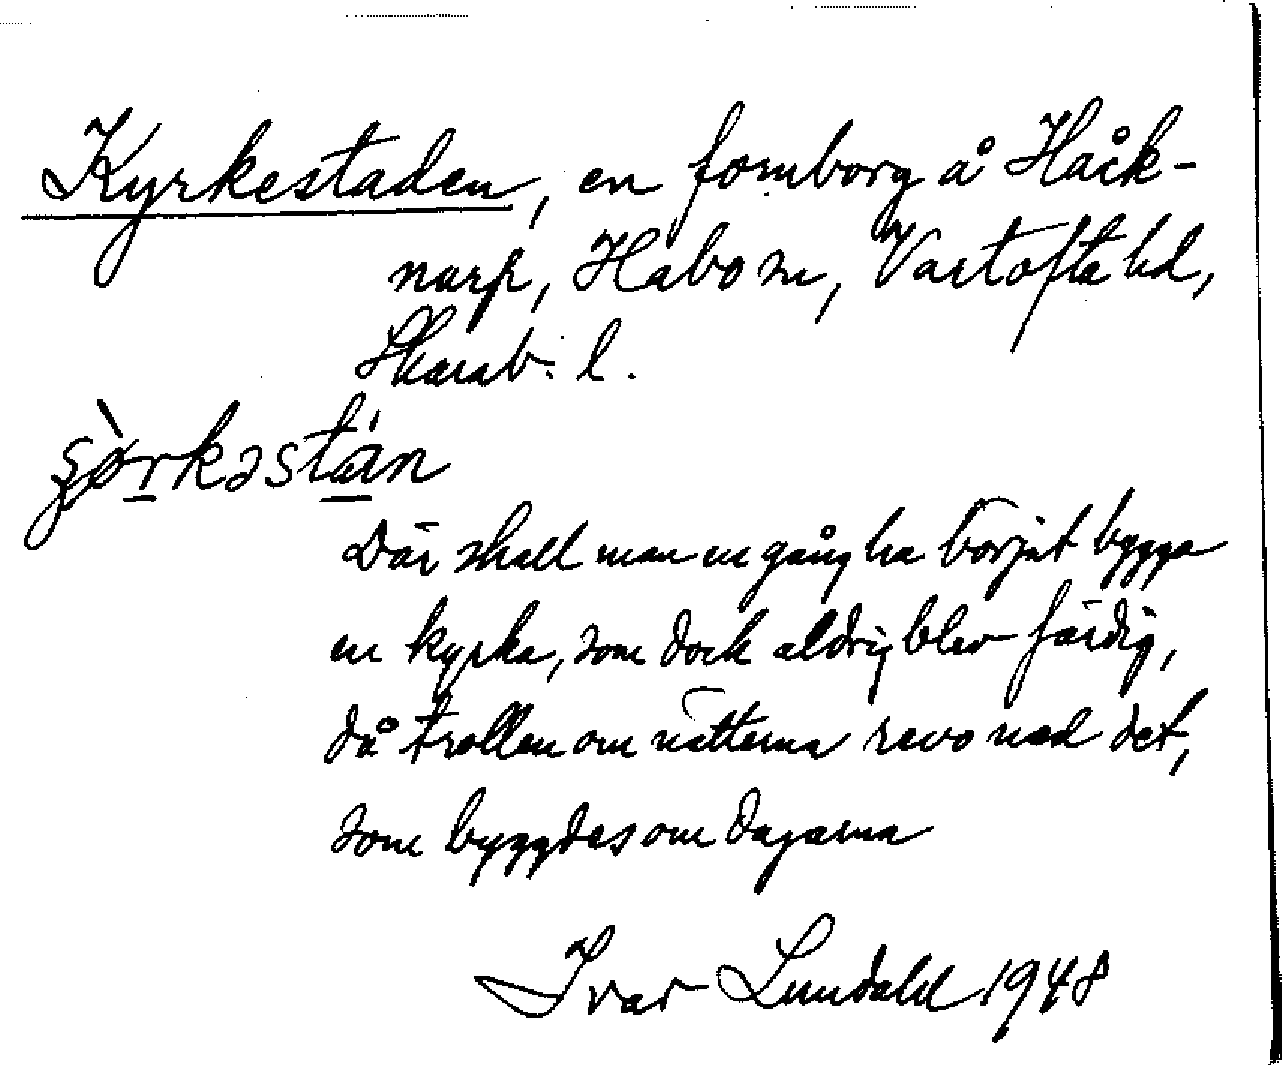 Kyrkestaden, en fornborg å Håk-
narp, Habo sn, Vartofta hd,
Skarab. l.
ʂø̀rkəstán
Där skall man en gång ha börjat bygga
en kyrka, som dock aldrig blev färdig,
då trollen om nätterna revo ned det,
som byggdes om dagarna
Ivar Lundahl 1948